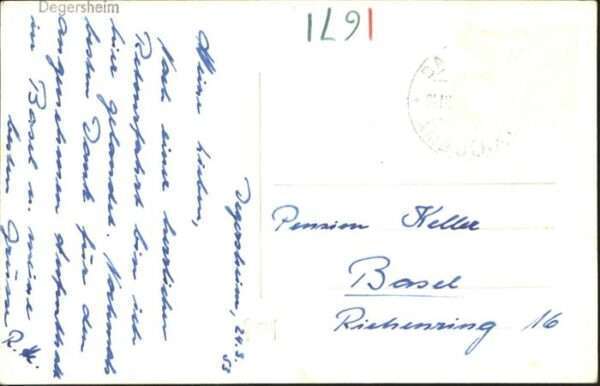 Degersheim
1671
Degersheim, 24.3.53
Meine Lieben,
Nach einer herrlichen
Retourfahrt bin ich
hier gelandet. Nochmals
besten Dank für den
angenehmen Aufenthalt
in Basel u. meine
besten Grüsse
Pension Keller
Basel
Riehenring 16